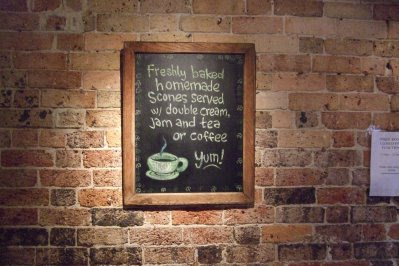 Freshly baked
homemade
Scones served
w/ double cream,
Jam and tea
or coffee
Yum!